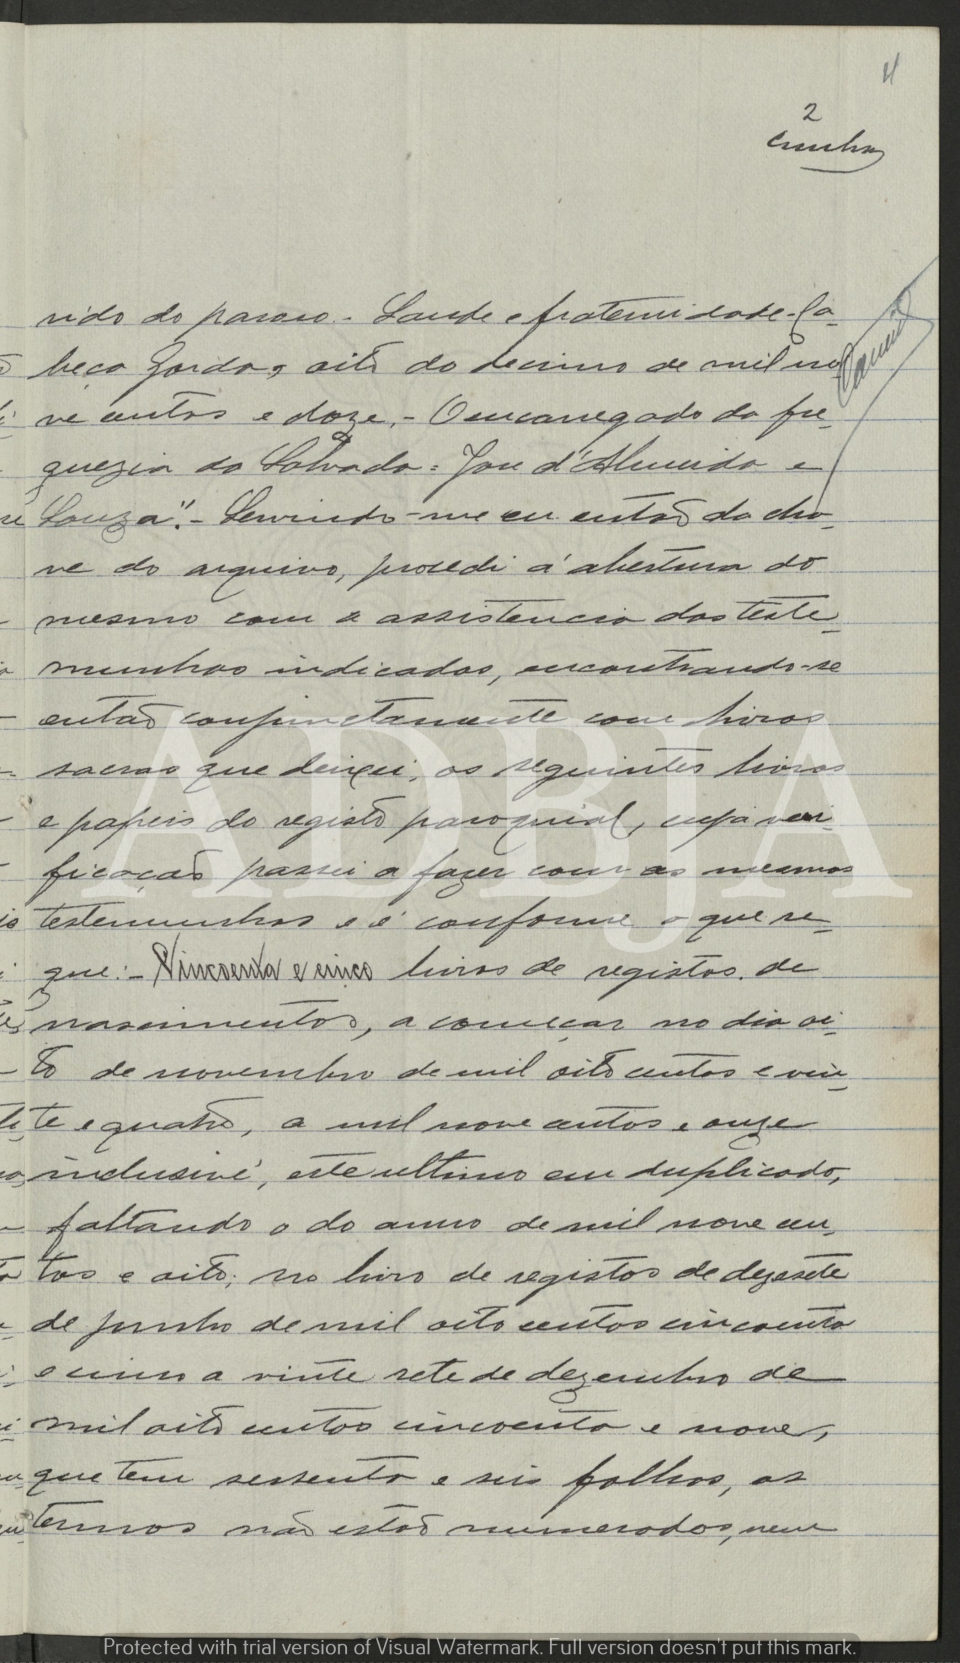 4
2
Cunha
rido do paroco. - Saude e fraternidade. Ca-
beça Gorda, oito do decimo de mil no-
ve centos e doze. - O encarregado da fre-
guezia do Salvada = José d'Almeida e
Souza". - Servindo-me eu então da cha-
ve do arquivo, procedi á abertura do
mesmo com a assistencia das teste-
munhas indicadas, encontrando-se
então conjunctamente com livros
sacros que deixei, os seguintes livros
e papeis do registo paroquial, cuja veri-
ficação passei a fazer com as mesmas
testemunhas e é conforme o que se-
gue: - Cincoenta e cinco livros de registos de
nascimentos, a começar no dia oi-
to de novembro de mil oito centos e vin-
te e quatro, a mil nove centos e onze
inclusivé, este ultimo em duplicado,
faltando o do anno de mil nove cen-
tos e oito; no livro de registos de dezesete
de junho de mil oito centos cincoenta
e cinco a vinte sete de dezembro de
mil oito centos cincoenta e nove,
que tem sessenta e seis folhas, os
termos não estão numerados, nem
ADBJA
Protected with trial version of Visual Watermark. Full version doesn't put this mark.